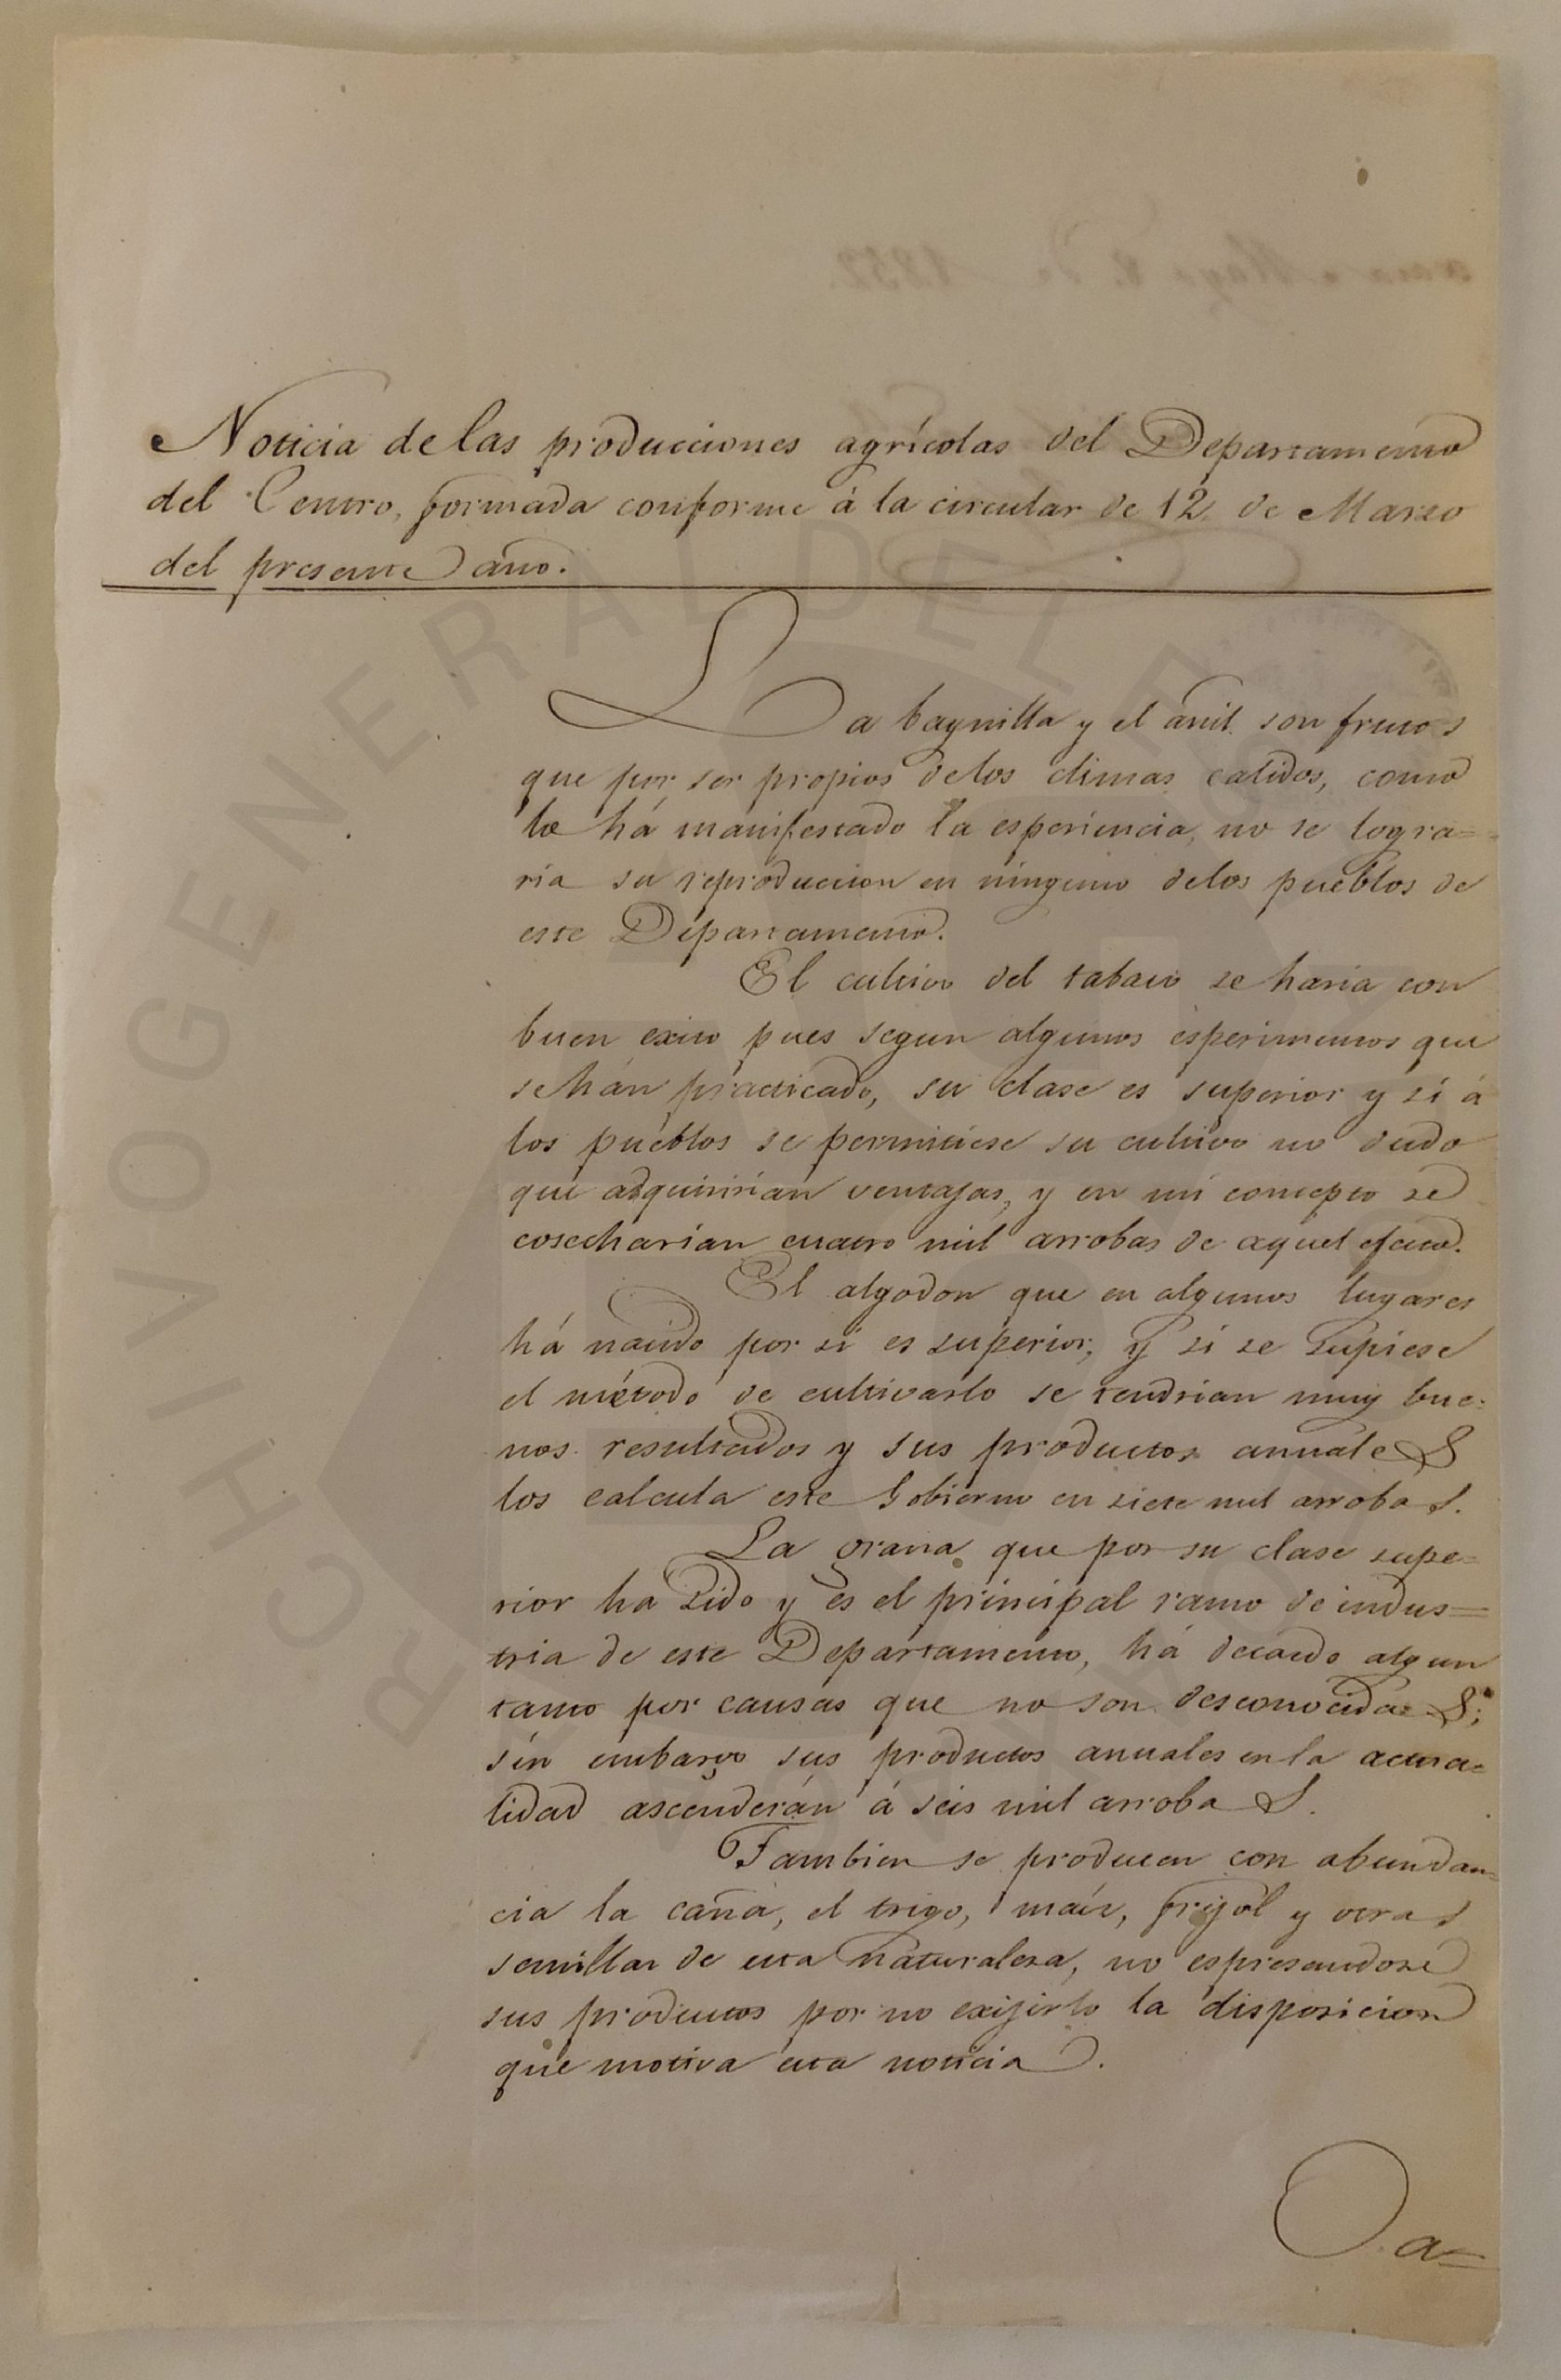 Noticia de las producciones agrícolas del Departamento
del Centro, formada conforme á la circular de 12 de Marzo
del presente año.
La baynilla y el añil son frutos
que por ser propios delos climas calidos, como
lo há manifestado la esperiencia, no se logra=
ria su reproduccion en ninguno delos pueblos de
este Departamento.
El cultivo del tabaco se haria con
buen exito pues segun algunos esperimentos que
se hán practicado, su clase es superior y si á
los pueblos se permitiese su cultivo no dudo
que adquiririan ventajas, y en mi concepto se
cosecharian cuatro mil arrobas de aquel efecto.
El algodon que en algunos lugares
há nacido por si es superior, y si se supiese
el método de cultivarlo se tendrian muy bue=
nos resultados y sus productos anuales
los calcula este Gobierno en siete mil arrobas.
La grana que por su clase supe=
rior ha sido y es el principal ramo de indus=
tria de este Departamento, há decaido algun
tanto por causas que no son desconocidas;
sin embargo sus productos anuales en la actua=
lidad ascenderán á seis mil arrobas.
Tambien se producen con abundan=
cia la caña, el trigo, maiz, frijol y otras
semillas de esta naturaleza, no espresandose
sus productos por no exijirlo la disposicion
que motiva esta noticia.
Oa=
ARCHIVO GENERAL DEL